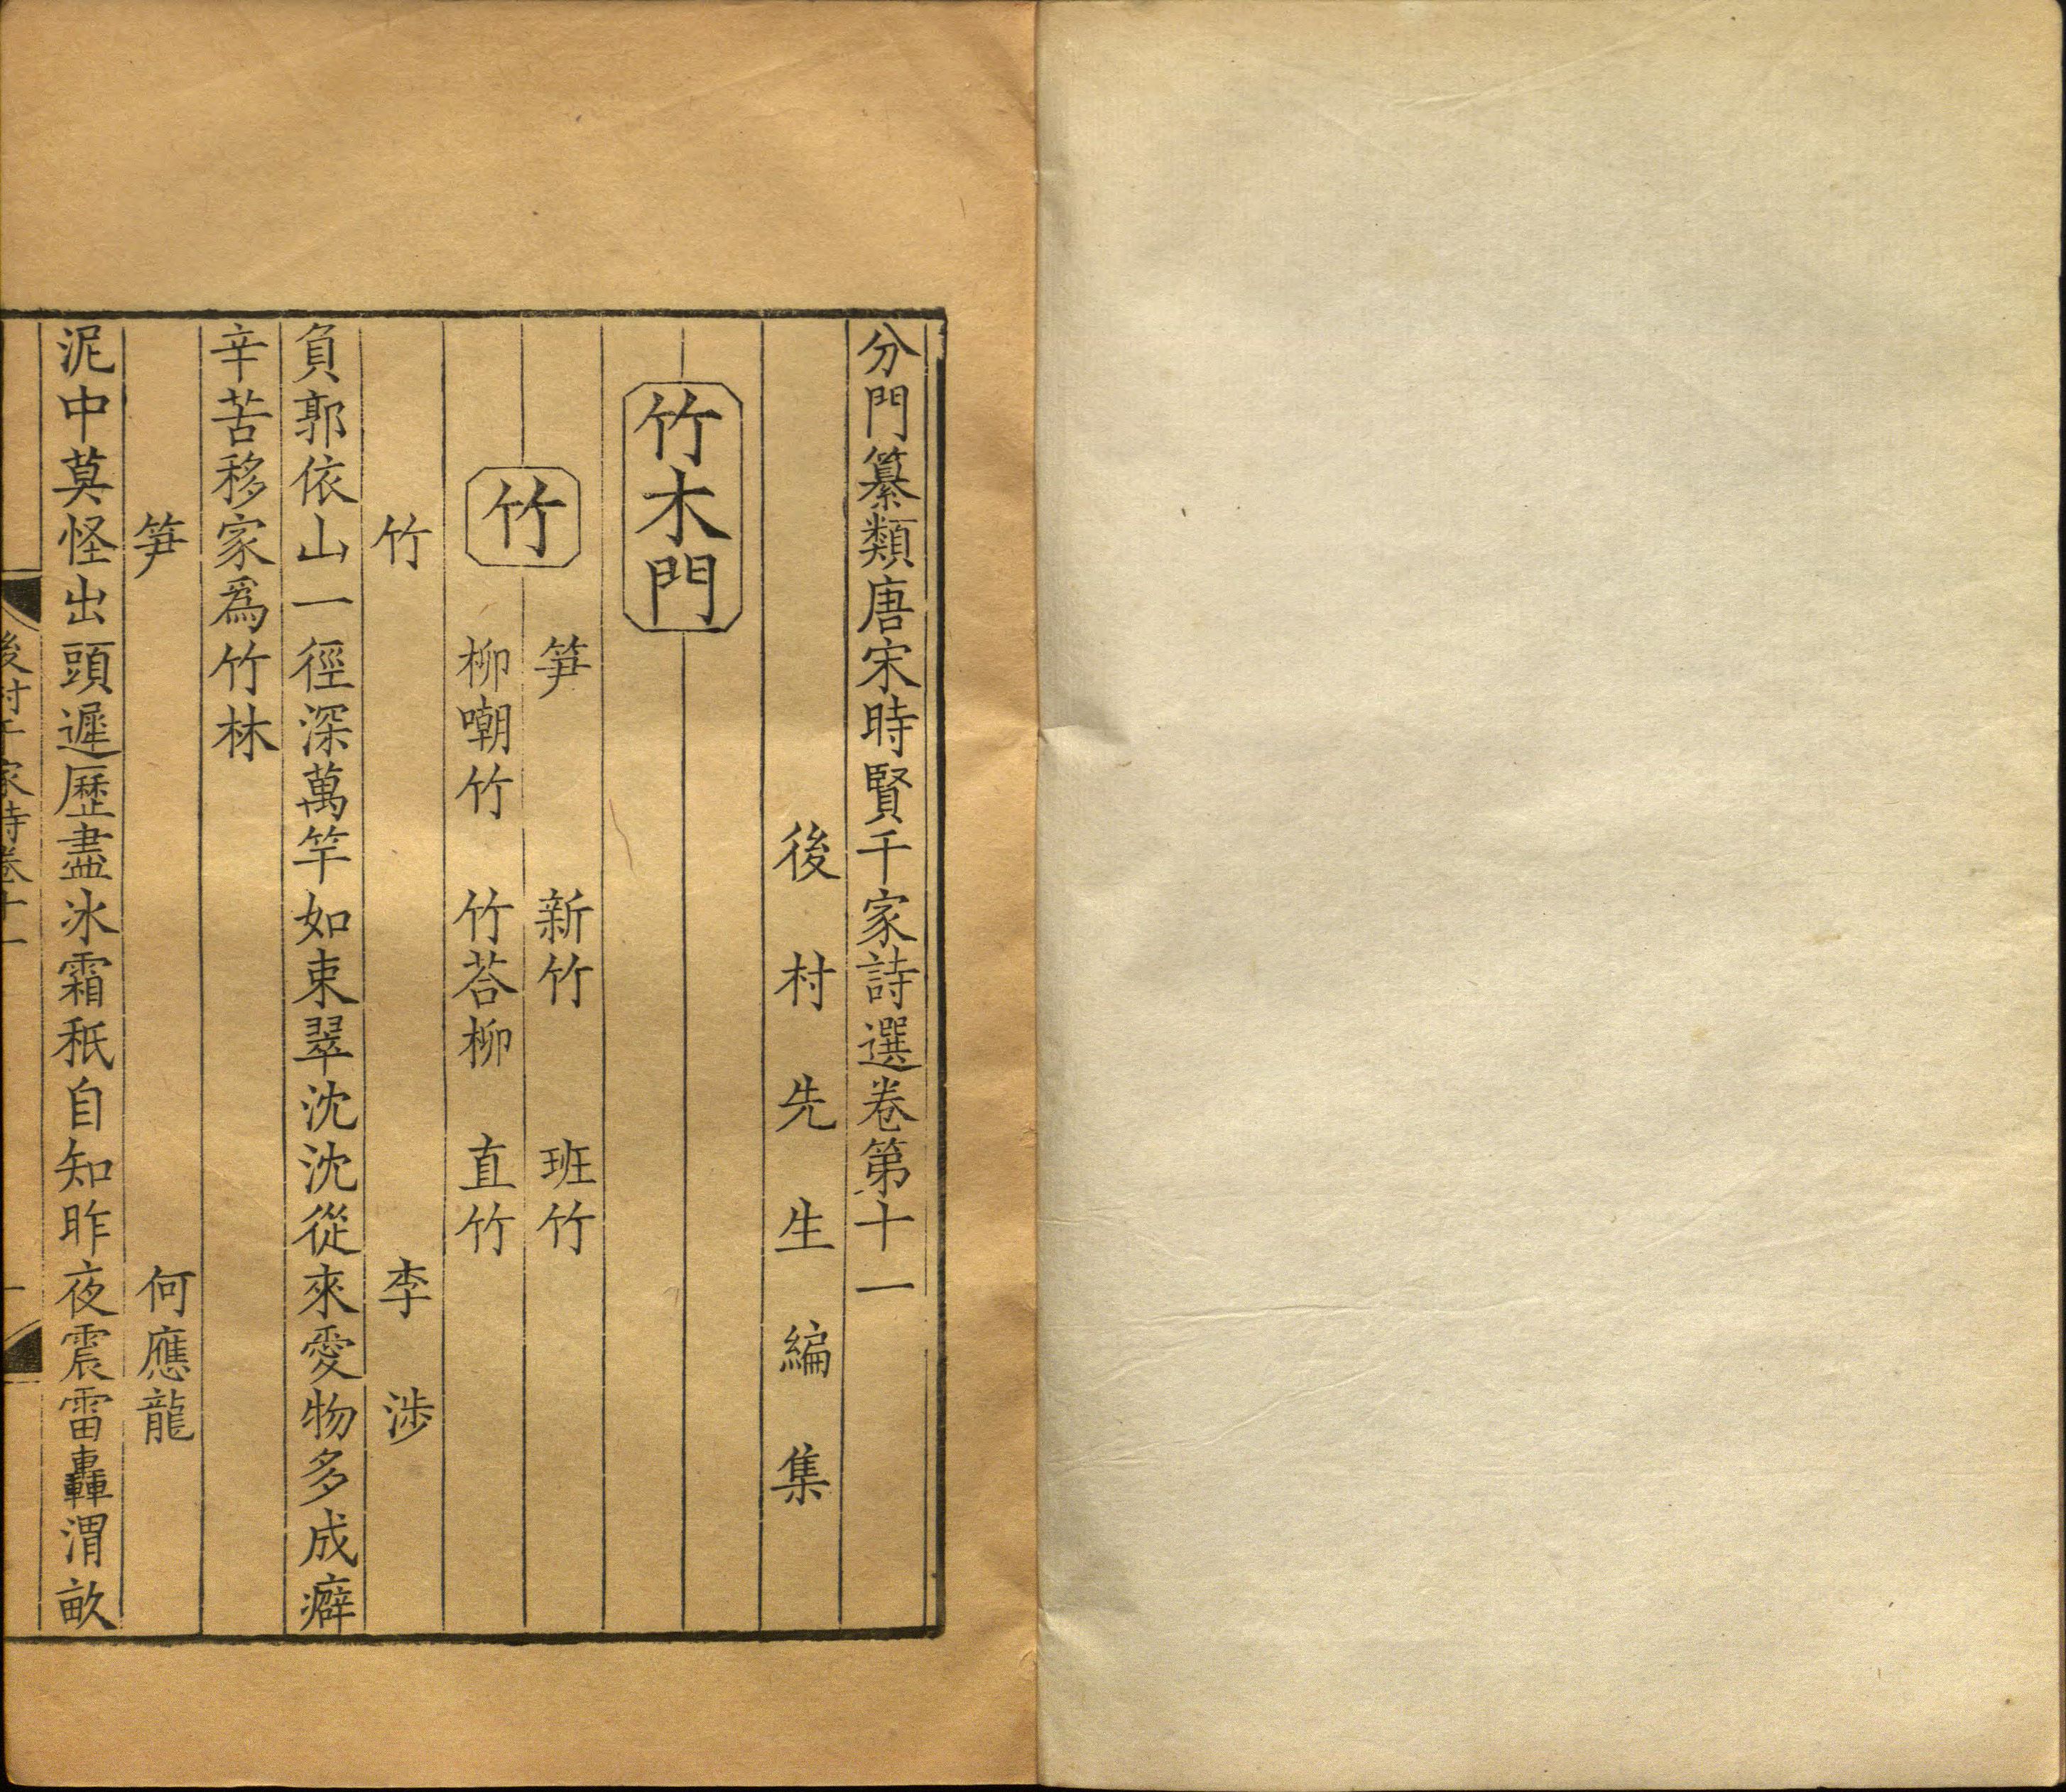 分門纂類唐宋時賢千家詩選卷第十一
後村先生編集
竹木門
竹
笋 新竹 班竹
柳嘲竹 竹荅柳 直竹
竹 李涉
負郭依山一徑深萬竿如束翠沈沈從來愛物多成癖
辛苦移家爲竹林
笋 何應龍
泥中莫怪出頭遲歷盡冰霜秖自知昨夜震雷轟渭畝
後村千家詩卷十一 一